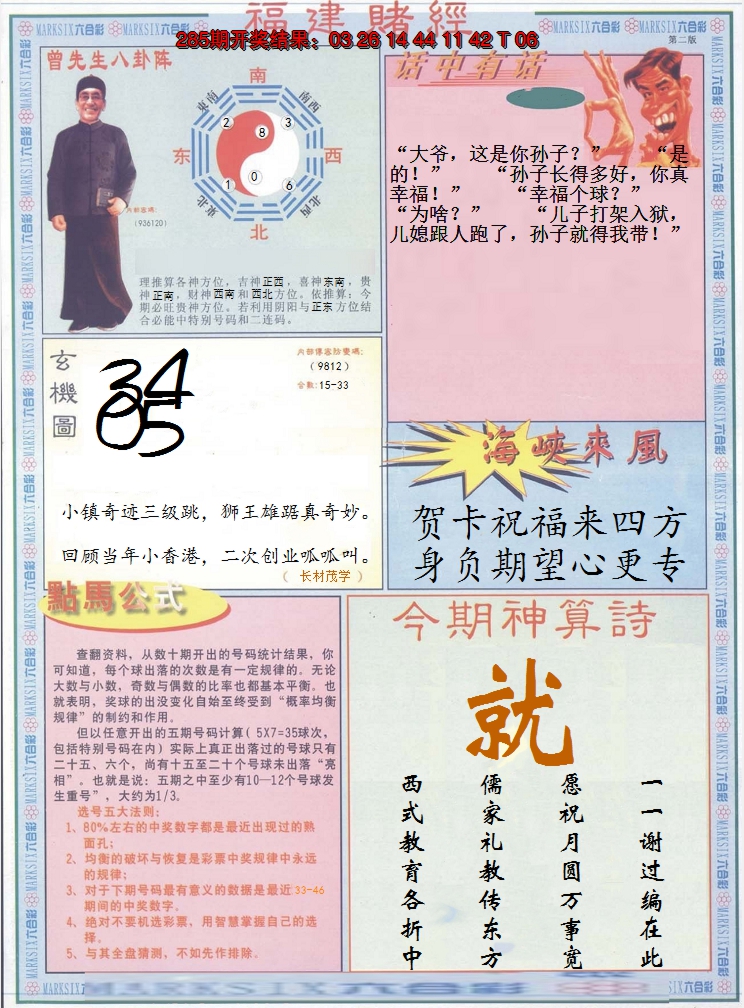 福建賭經
285期开奖结果：03 26 14 44 11 42 T 06
MARKSIX六合彩
第二版
曾先生八卦阵
南
东南
南西
2
8
3
东
西
1
0
6
东北
北西
北
内部密碼:
(936120)
理推算各神方位，吉神正西，喜神东南，贵
神正南，财神西南和西北方位。依推算：今
期必旺贵神方位。若利用阴阳与正东方位结
合必能中特别号码和二连码。
话中有话
“大爷，这是你孙子？” “是
的！” “孙子长得多好，你真
幸福！” “幸福个球？”
“为啥？” “儿子打架入狱，
儿媳跟人跑了，孙子就得我带！”
玄機圖
34
05
(9812)
合数:15-33
小镇奇迹三级跳，狮王雄踞真奇妙。
回顾当年小香港，二次创业呱呱叫。
（ 长材茂学 ）
海峡來風
贺卡祝福来四方
身负期望心更专
點馬公式
查翻资料，从数十期开出的号码统计结果，你
可知道，每个球出落的次数是有一定规律的。无论
大数与小数，奇数与偶数的比率也都基本平衡。也
就表明，奖球的出没变化自始至终受到“概率均衡
规律”的制约和作用。
但以任意开出的五期号码计算( 5X7=35球次，
包括特别号码在内）实际上真正出落过的号球只有
二十五、六个，尚有十五至二十个号球未出落“亮
相”。也就是说：五期之中至少有10—12个号球发
生重号”，大约为1/3。
选号五大法则:
1、80%左右的中奖数字都是最近出现过的熟
面孔;
2、均衡的破坏与恢复是彩票中奖规律中永远
的规律;
3、对于下期号码最有意义的数据是最近33-46
期间的中奖数字。
4、绝对不要机选彩票，用智慧掌握自己的选
择。
5、与其全盘猜测，不如先作排除。
今期神算詩
就
一一谢过编在此
愿祝月圆万事宽
儒家礼教传东方
西式教育各折中